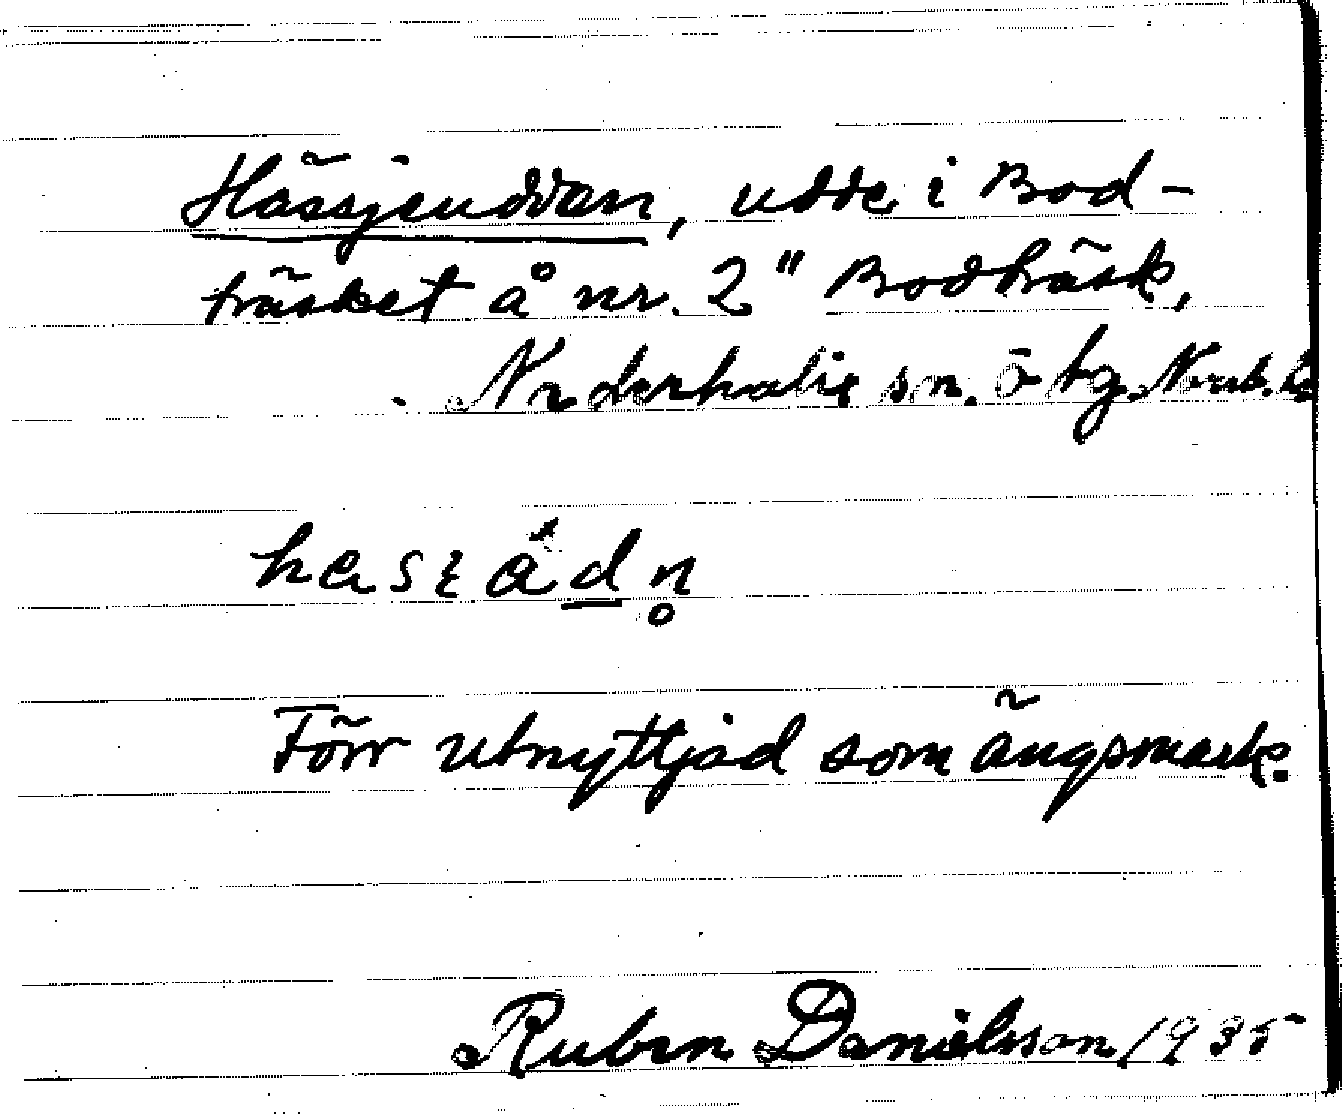 Hässjeuddan, udde i Bod-
träsket å nr. 2" Bodträsk,
Nederkalix sn. ö tg. Norrb. l.
hesɛådn̥
Förr utnyttjad som ängsmark.
Ruben Danielsson 1935